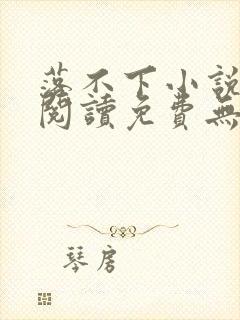 落不下小說
閱讀免費無
琴房